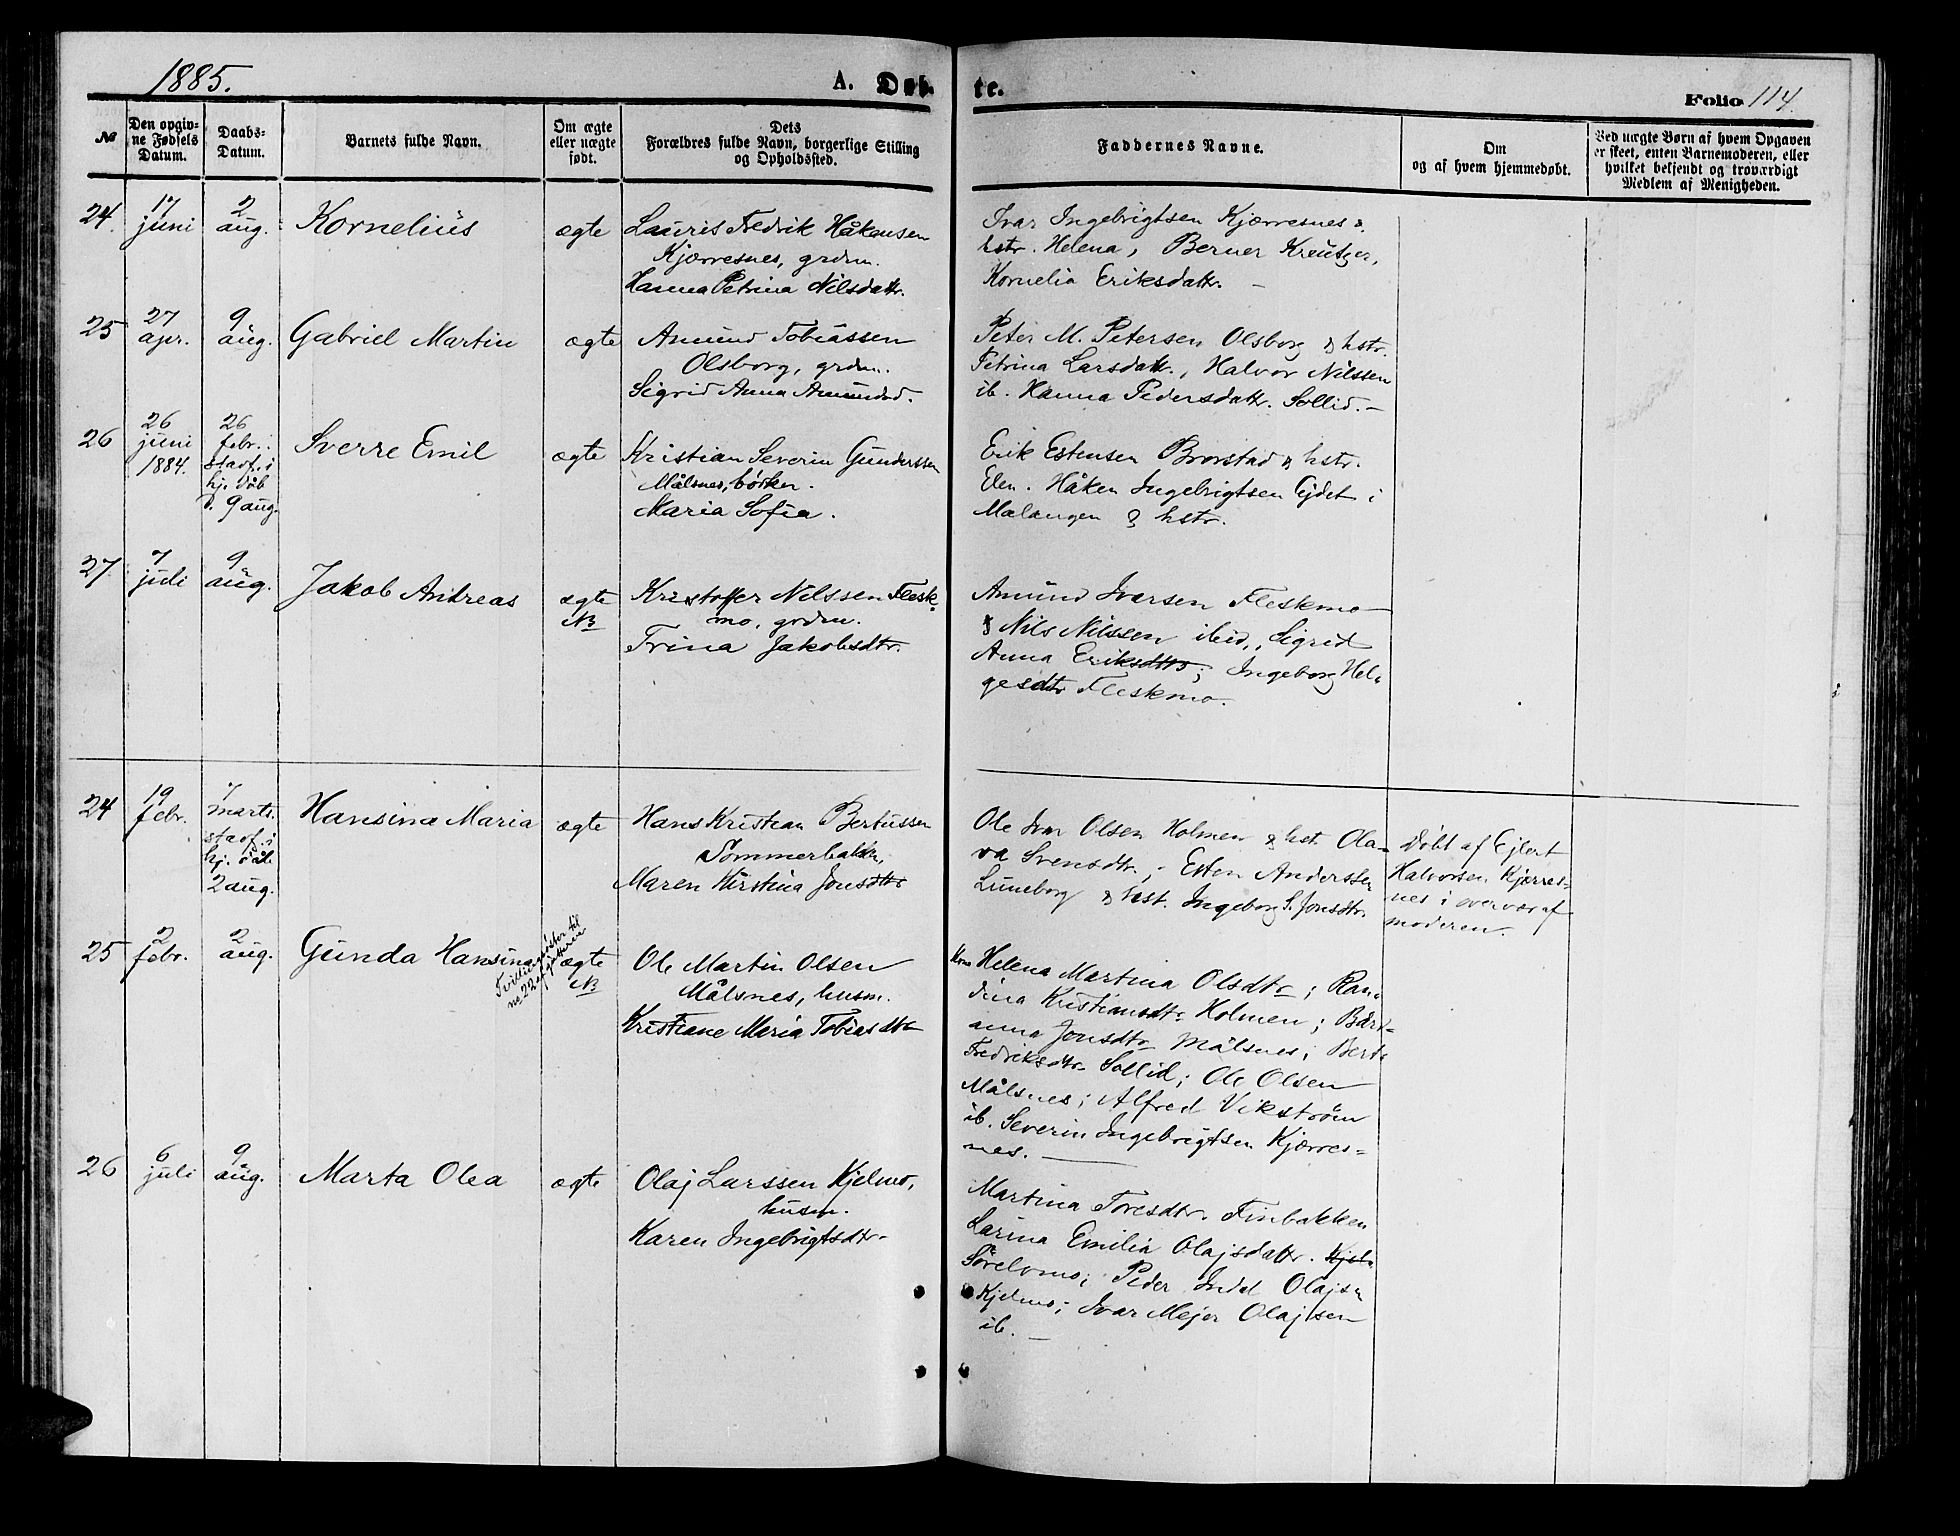 1885.
A. Døb-
te.
Folio 114.
№
Den opgiv-
ne Fødsels
Datum.
Daabs-
Datum.
Barnets fulde Navn.
Om ægte
eller uægte
født.
Dets
Forældres fulde Navn, borgerlige Stilling
og Opholdssted.
Faddernes Navne.
Om
og af hvem hjemmedøbt.
Ved uægte Børn af hvem Opgaven
er skeet, enten Barnemoderen, eller
hvilket bekjendt og troværdigt
Medlem af Menigheden.
24.
17
juni
2
aug.
Kornelius
ægte
Lauris Fredrik Håkensen
Kjærresnes, grdm.
Hanna Petrina Nilsdatr.
Ivar Ingebrigtsen Kjærresnes &
hstr. Helena, Berner Kreutzer,
Kornelia Eriksdatr. —
25
27
apr.
9
aug.
Gabriel Martin
ægte
Amund Tobiassen
Olsborg, grdm.
Sigrid Anna Amundsd.
Peter M. Petersen Olsborg & hstr.
Petrina Larsdatr., Halvor Nilssen
ib. Hanna Pedersdatr. Sollid. —
26
26
juni
1884.
26
febr.
stadf. i
hj. døb
d. 9 aug.
Sverre Emil
ægte
Kristian Severin Gunderssen
Målsnes, bödker.
Maria Sofia.
Erik Estensen Brorstad & hstr.
Elen. Håken Ingebrigtsen Ejdet i
Malangen & hstr.
27
7
juli
9
aug.
Jakob Andreas
ægte
NB
Kristoffer Nilssen Flesk-
mo, grdm.
Trina Jakobsdtr.
Amund Ivarsen Fleskmo
& Nils Nilssen ibid., Sigrid
Anna Eriksdtr; Ingeborg Hel-
gesdtr Fleskmo.
24
19
febr.
7
marts.
stadf. i
hj. døb
2 aug.
Hansine Maria
ægte
Hans Kristian Bertussen
Sommerbakken,
Maren Kirstina Jonsdtr
Ole Ivar Olsen Holmen & hst. Ola-
va Svensdtr.; Esten Anderssen
Luneborg & hst. Ingeborg S. Jonsdtr.
Døbt af Ejlert
Halvorsen Kjærres-
nes i overvær af
moderen.
25
2
febr.
2
aug.
Gunda Hansina
Tvillingsøster til
ægte
NB
Ole Martin Olsen
Målsnes, husm.
Kristiane Maria Tobiasdtr
Kone Helena Martina Olsdtr; Ran-
dina Kristiansdtr Holmen; Bård-
anna Jonsdtr Målsnes; Berit
Fredriksdtr Sollid; Ole Olsen
Målsnes; Alfred Vikström
ib. Severin Ingebrigtsen Kjærres-
nes. —
26
6
juli
9
aug.
Marta Olea
ægte
Olaj Larssen Kjelmo,
husm.
Karen Ingebrigtsdtr
Martina Toresdtr. Finbakken
Larina Emilia Olajsdatr. Kjel-
Sörelvmo; Peder Olajsen
Kjelmo; Ivar Mejer Olajsen
ib. —